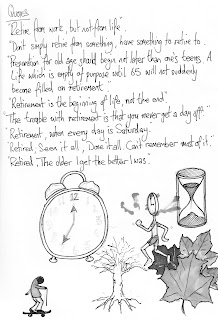 Quotes
"Retire from work, but not from life"
"Don't simply retire from something, have something to retire to.
"Preparation for old age should begin not later than one's teens. A
life which is empty of purpose until 65 will not suddenly
become filled on retirement".
"Retirement is the beginning of life, not the end".
"The trouble with retirement is that you never get a day off".
"Retirement, when every day is Saturday.
"Retired, Seen it all, Done it all. Can't remember most of it."
"Retired, The older I get the better I was".
12